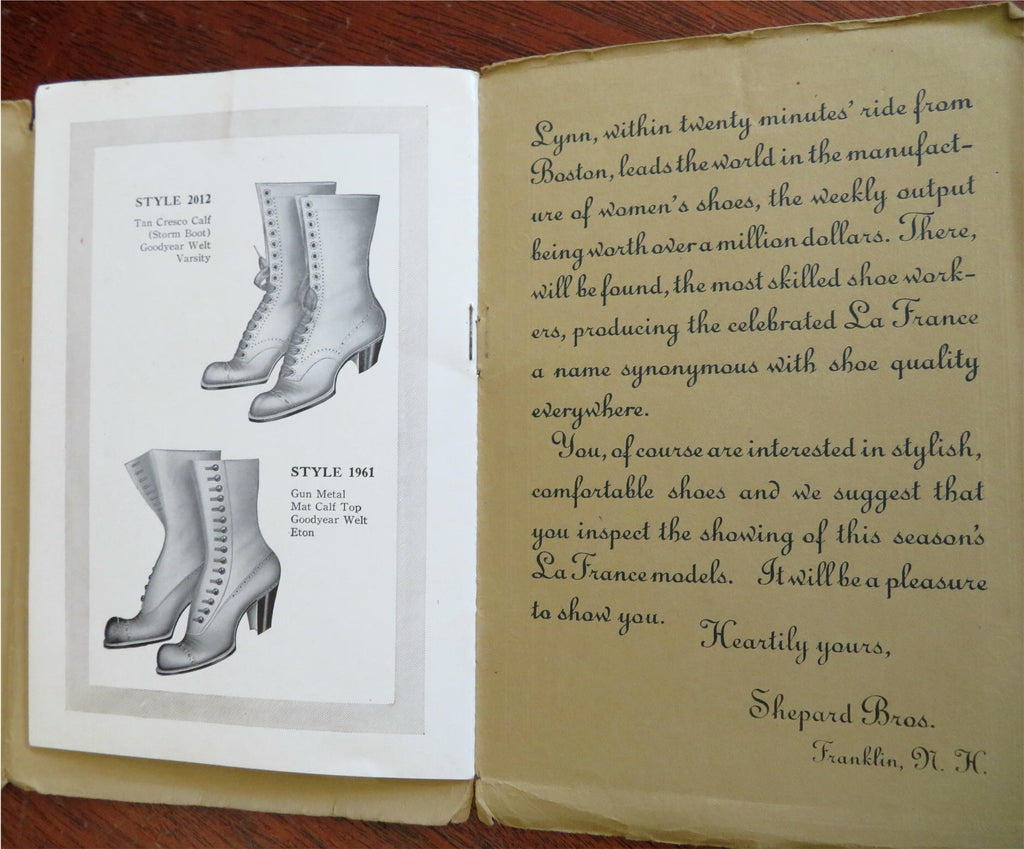 STYLE 2012
Tan Cresco Calf
(Storm Boot)
Goodyear Welt
Varsity
STYLE 1961
Gun Metal
Mat Calf Top
Goodyear Welt
Eton
Lynn, within twenty minutes' ride from
Boston, leads the world in the manufact-
ure of women's shoes, the weekly output
being worth over a million dollars. There,
will be found, the most skilled shoe work-
ers, producing the celebrated La France
a name synonymous with shoe quality
everywhere.
You, of course are interested in stylish,
comfortable shoes and we suggest that
you inspect the showing of this season's
La France models. It will be a pleasure
to show you.
Heartily yours,
Shepard Bros.
Franklin, N. H.